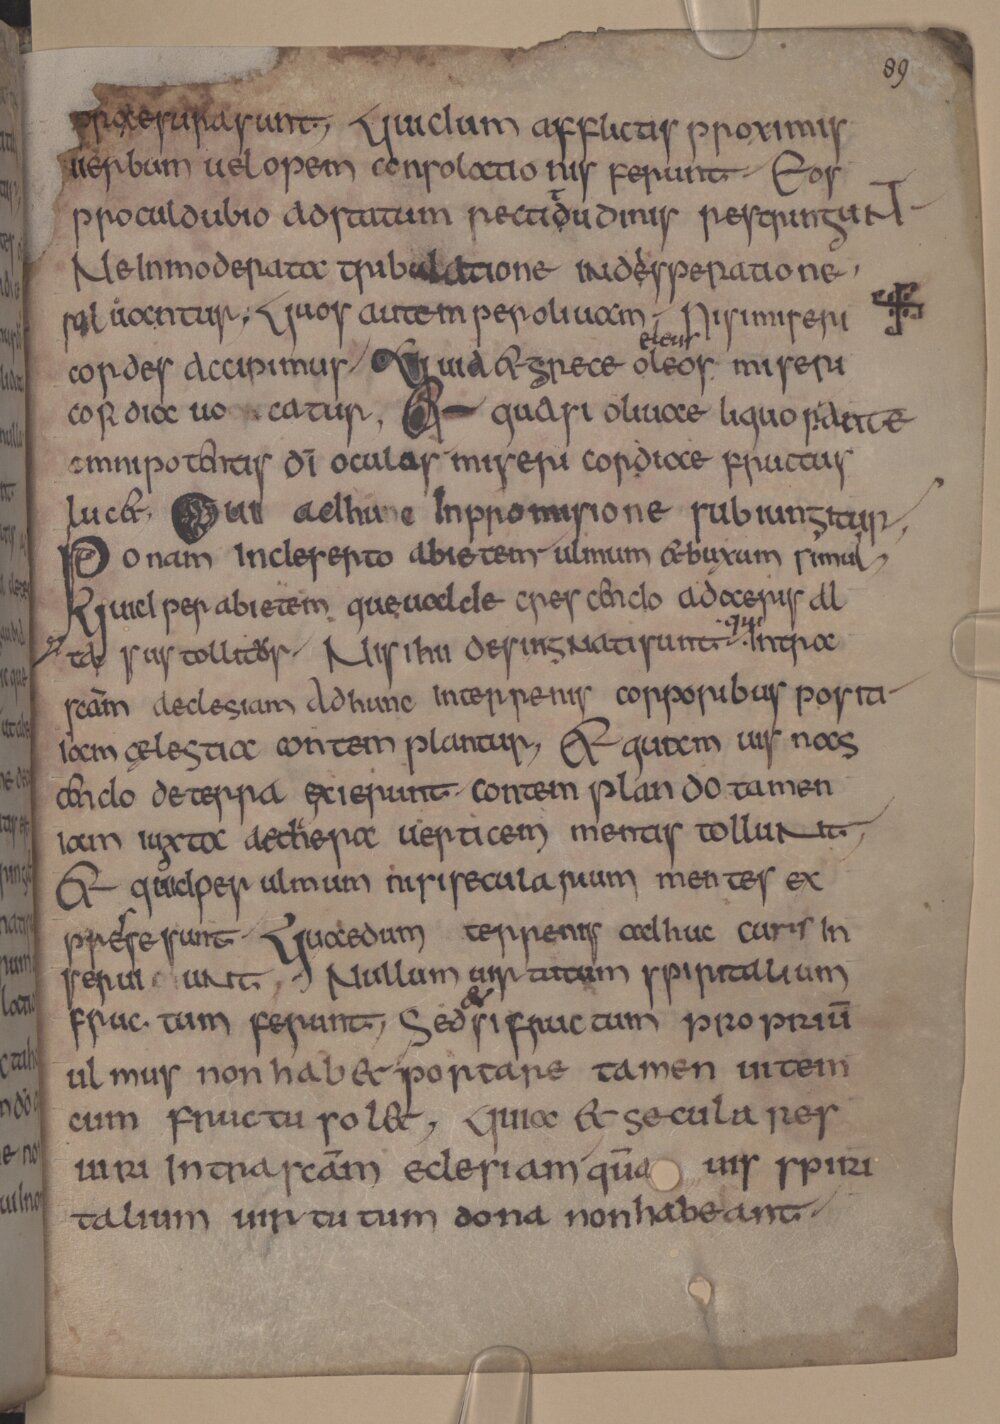 89
precurasunt, Quidum afflictis proximis
uerbum uel opem consolatio nis ferunt Eos
proculdubio adstatum rectitudinis restringunt
Ne inmoderata tribulatione in desperatione,
soluantur, Quos autem per oliuam Nisi miseri
eleus
cordes accipimus Quia & grece oleos miseri
cordia uo catur, Et quasi oliuae liquor ante
omnipotentis di oculos miseri cordiae fructus
luc& Cui adhunc In promisione subiungitur,
Ponam In deserto abietem ulmum & buxum simul,
Quid per abietem que ualde crescendo ad aeris al
qui
ta suis tollitur Nisi hii designati sunt Intra
scam aeclesiam adhunc In terrenis corporibus positi
iam celestia contemplantur, Et quam uis nas
cendo de terra exierunt contemplando tamen
iam iuxta aethera uerticem mentis tollunt,
Et quid per ulmum nisi secularium mentes ex
presse sunt Quaedum terrenis adhuc curis In
serui unt, Nullum uirtutum spiritalium
&
fructum ferunt, Sed si fructum propriū
ulmus non hab& portare tamen uitem
cum fructu sol&, Quia & seculares
uiri Intra scām eclesiam quā uis spiri
talium uirtutum dona non habeant